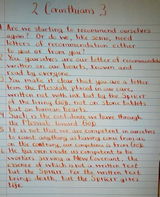 2 Corinthians 3
1 Are we starting to recommend ourselves
again? Or do we, like some, need
letters of recommendation either
to you or from you?
2 You yourselves are our letter of recommendation
written on our hearts, known and
read by everyone.
3 You make it clear that you are a letter
from the Messiah, placed in our care,
written not with ink but by the Spirit
of the living God, not on stone tablets
but on human hearts.
4 Such is the confidence we have through
the Messiah toward God.
5 It is not that we are competent in ourselves
to count anything as having come from us
on the contrary, our competence is from God.
6 He has even made us competent to be
workers serving a New Covenant, the
essence of which is not a written text
but the Spirit. For the written text
brings death, but the Spirit gives
life.